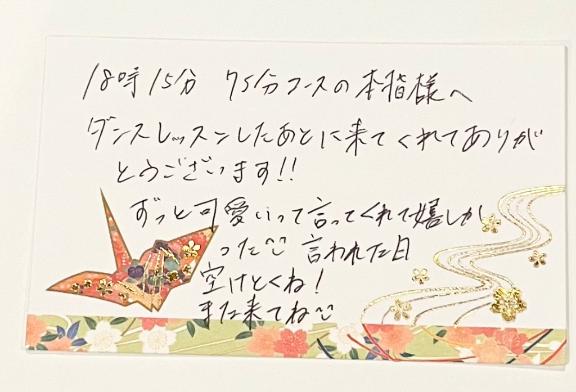 18時15分 75分コースの本指様へ
ダンスレッスンしたあとに来てくれてありが
とうございます!!
ずっと可愛いって言ってくれて嬉しか
った 言われた日
空けとくね!
また来てね